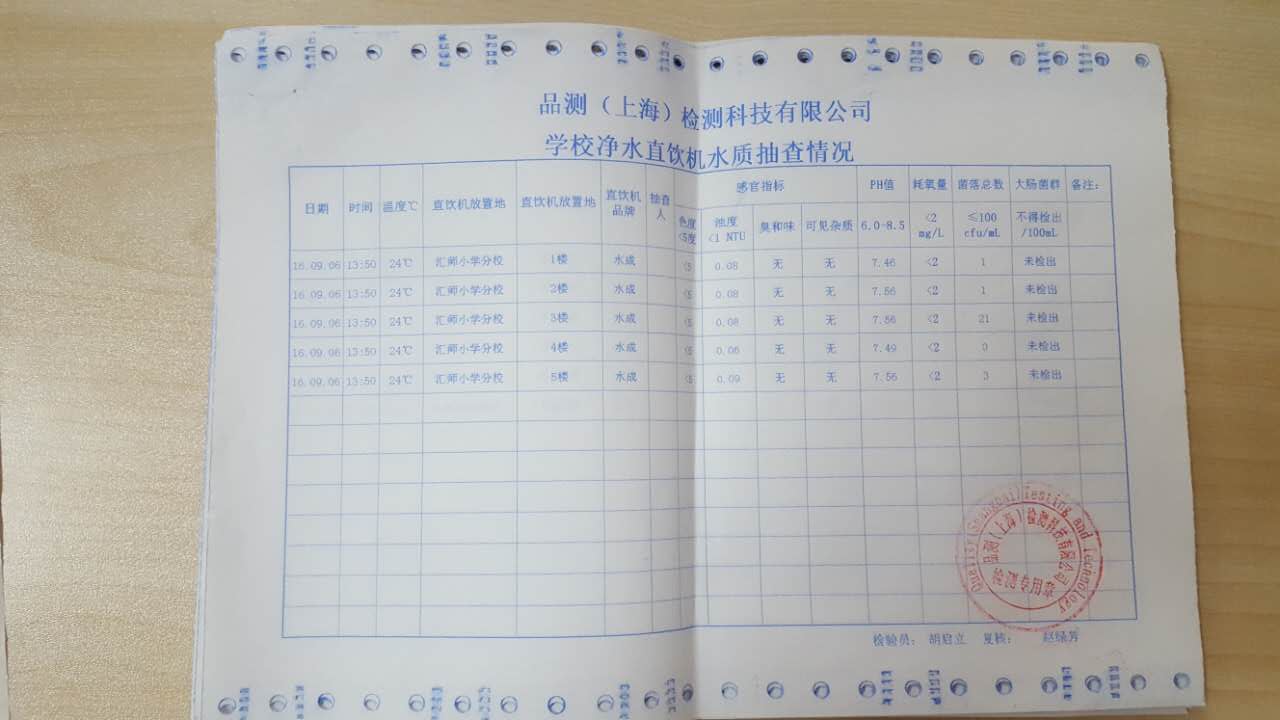 品测（上海）检测科技有限公司
学校净水直饮机水质抽查情况
日期 时间 温度℃ 直饮机放置地 直饮机放置地 直饮机品牌 抽查人 感官指标 PH值 耗氧量 菌落总数 大肠菌群 备注：
色度<5度 浊度<1 NTU 臭和味 可见杂质 6.0-8.5 <2 mg/L ≤100 cfu/mL 不得检出/100mL
16.09.06 13:50 24℃ 汇师小学分校 1楼 水成 <5 0.08 无 无 7.46 <2 1 未检出
16.09.06 13:50 24℃ 汇师小学分校 2楼 水成 <5 0.08 无 无 7.56 <2 1 未检出
16.09.06 13:50 24℃ 汇师小学分校 3楼 水成 <5 0.08 无 无 7.56 <2 21 未检出
16.09.06 13:50 24℃ 汇师小学分校 4楼 水成 <5 0.06 无 无 7.49 <2 0 未检出
16.09.06 13:50 24℃ 汇师小学分校 5楼 水成 <5 0.09 无 无 7.56 <2 3 未检出
Quality(Shanghai)Testing and Technology
品测（上海）检测科技有限公司
检测专用章
检验员： 胡启立 复核： 赵绿芳